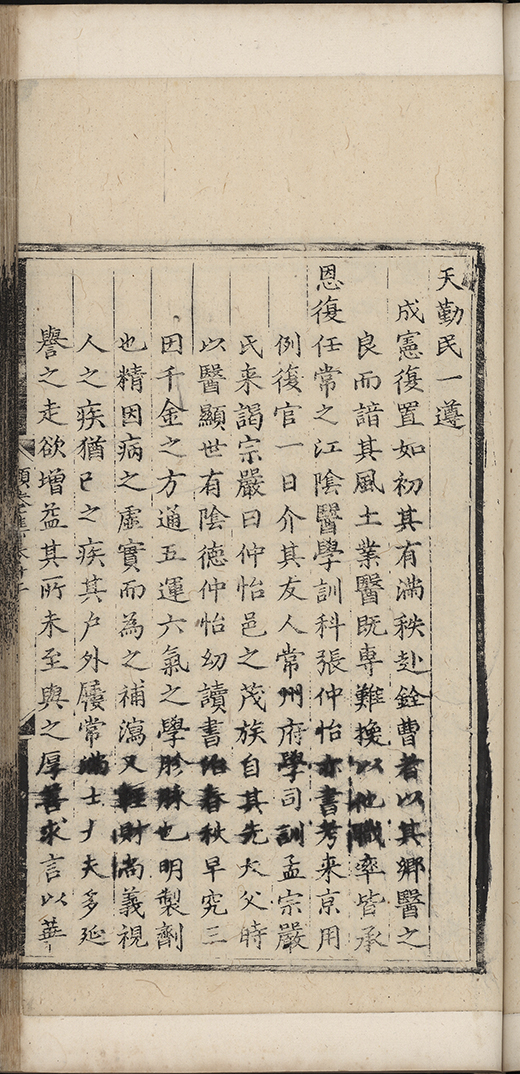 天勤民一遵
成憲復置如初其有滿秩赴銓曹者以其鄉醫之
良而諳其風土業醫既專難挽以他職率皆承
恩復任常之江陰醫學訓科張仲怡亦書考来京用
例復官一日介其友人常州府學司訓孟宗嚴
氏来謁宗嚴曰仲怡邑之茂族自其先大父時
以醫顯世有陰德仲怡幼讀書治春秋早究三
因千金之方通五運六氣之學胗脉也明製劑
也精因病之虛實而為之補瀉又輕財尚義視
人之疾猶己之疾其户外屨常滿士大夫多延
譽之走欲增益其所未至與之厚善求言以華